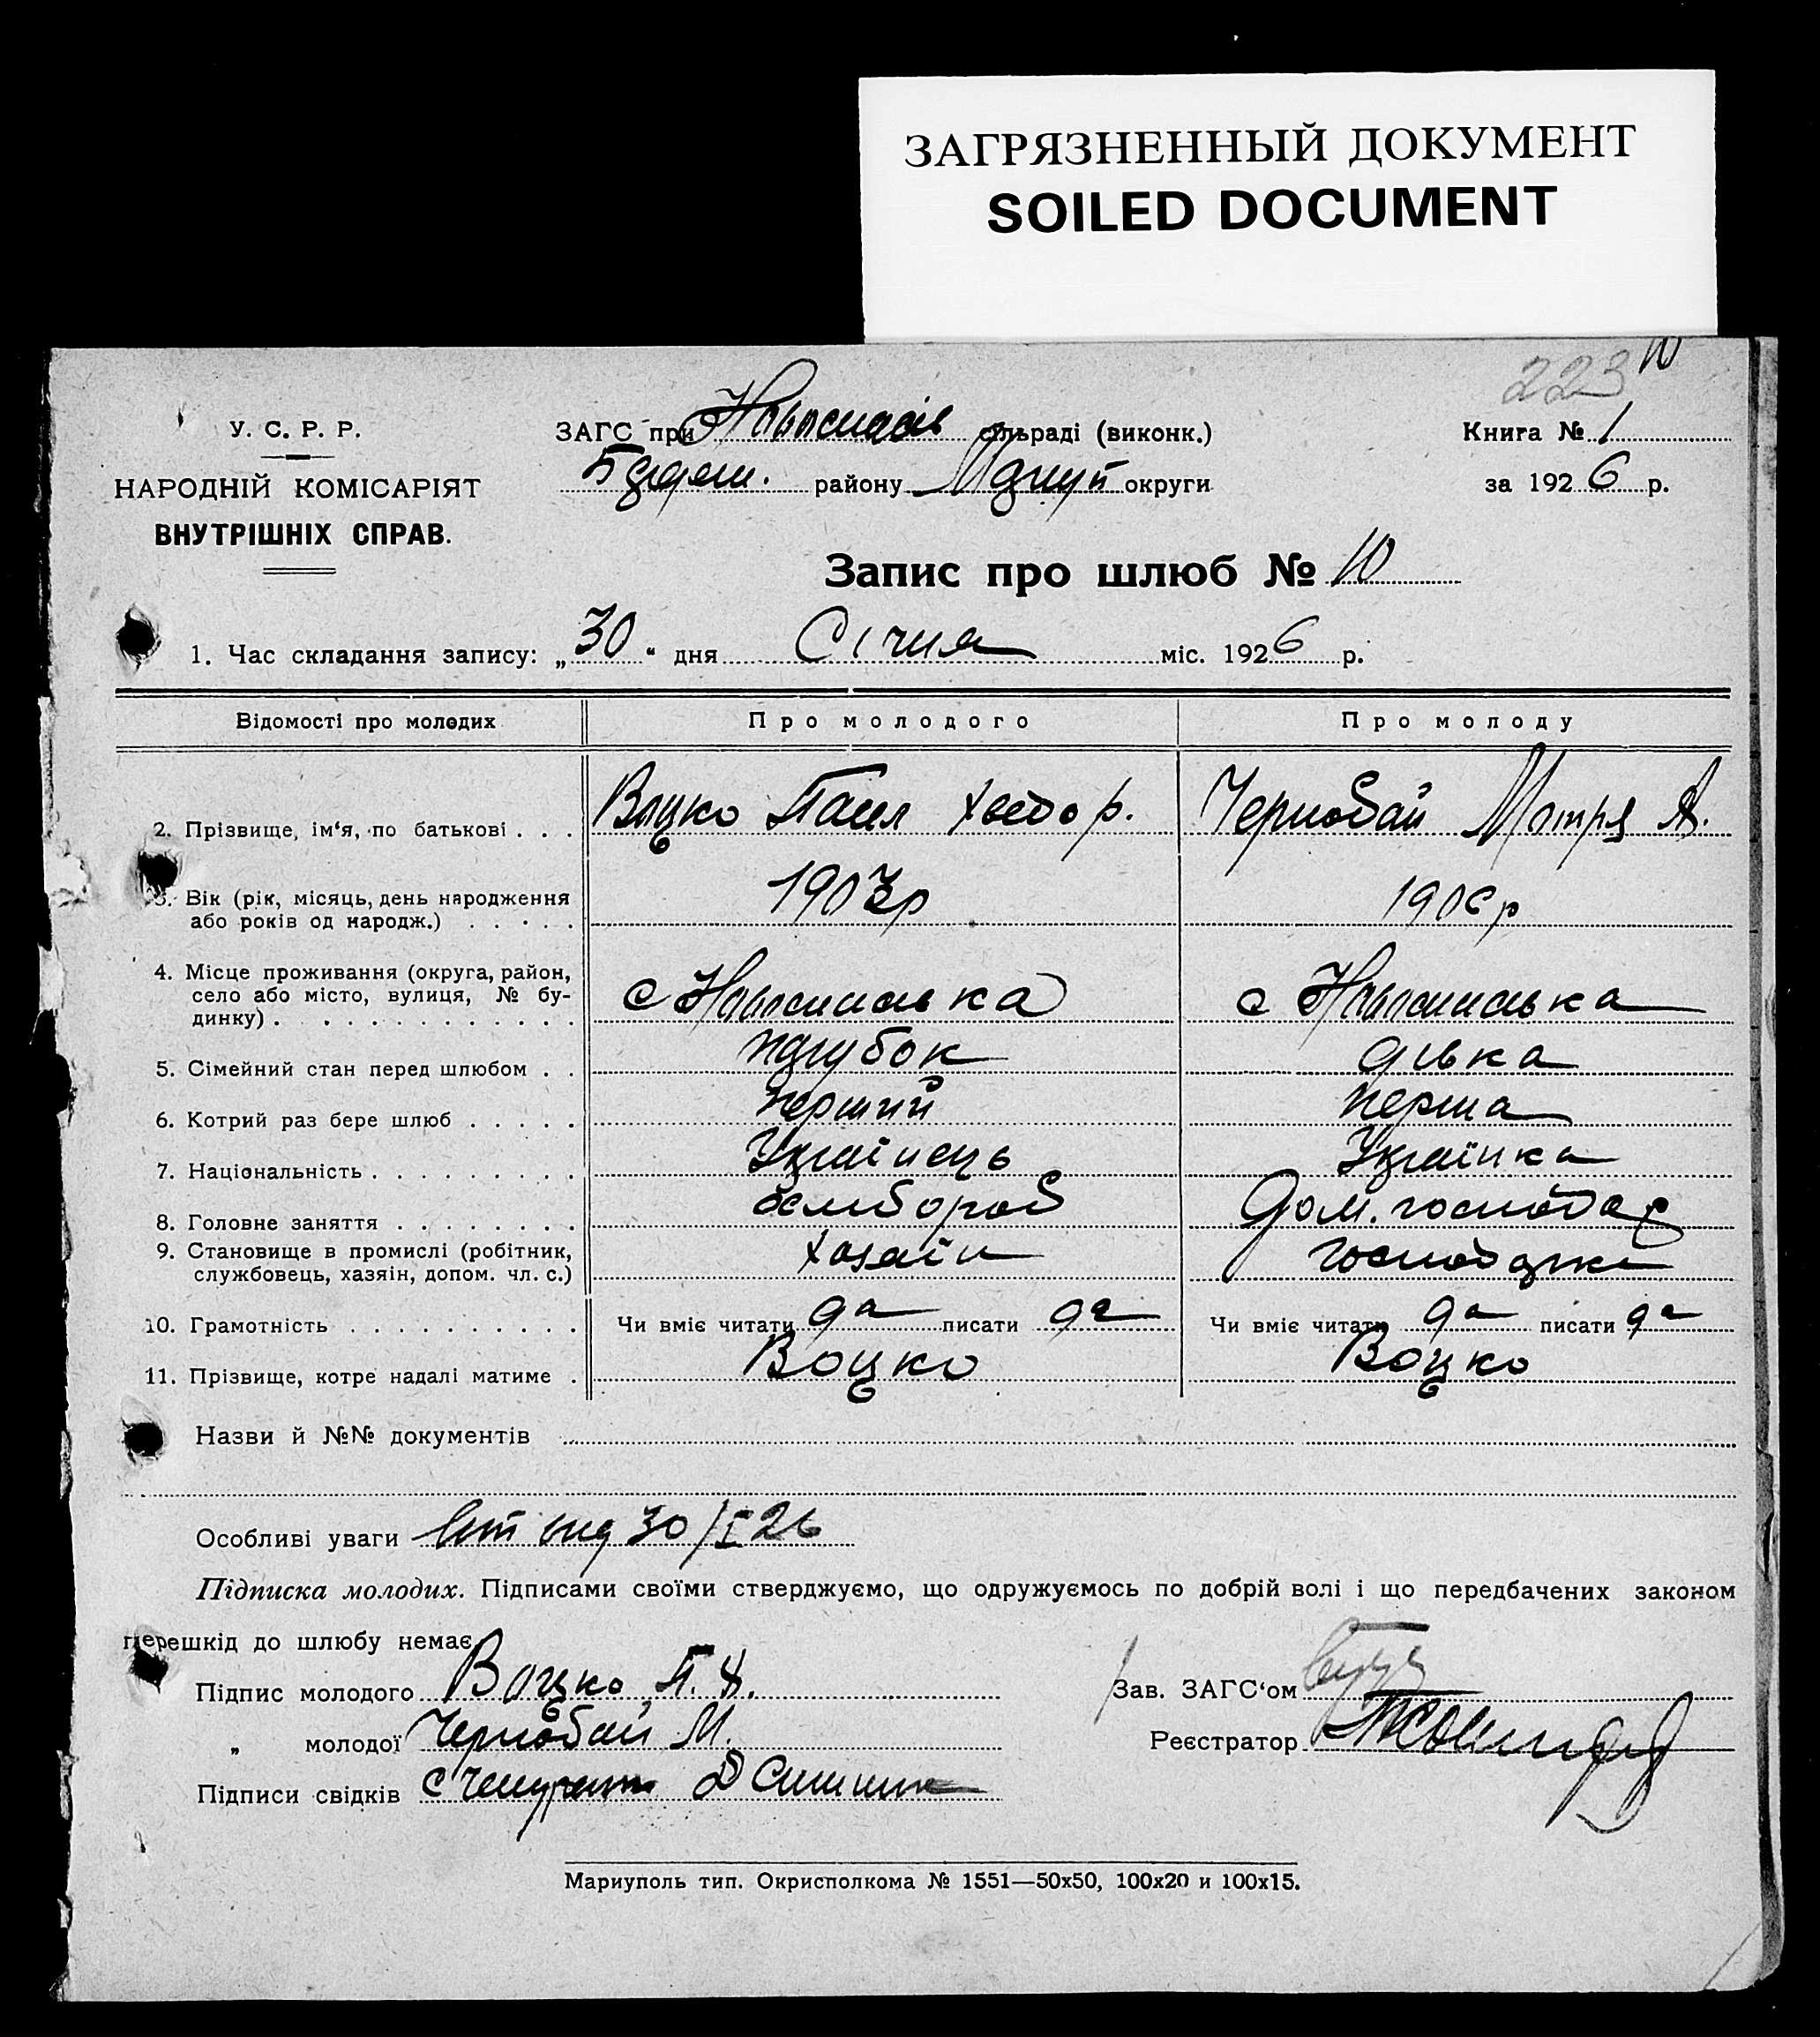 ЗАГРЯЗНЕННЫЙ ДОКУМЕНТ
SOILED DOCUMENT
223 10
У. С. Р. Р.
НАРОДНІЙ КОМІСАРІЯТ
ВНУТРІШНІХ СПРАВ.
ЗАГС при Новоспасів сільраді (виконк.)
району округи
Книга № 1
за 1926 р.
Запис про шлюб № 10
1. Час складання запису: „30“ дня Січня міс. 1926 р.
Відомості про молодих Про молодого Про молоду
2. Прізвище, ім'я, по батькові . . . Воцко Павл Хведор. Чернобай Мотря А.
3. Вік (рік, місяць, день народження 1903р 1906р
або років од народж.) . . . . .
4. Місце проживання (округа, район,
село або місто, вулиця, № бу- с Новоспаська с Новоспаська
динку) . . . . . . . . . . . .
5. Сімейний стан перед шлюбом . . парубок дівка
6. Котрий раз бере шлюб . . . . . Перший Перша
7. Національність . . . . . . . . . Українець Українка
8. Головне заняття . . . . . . . . хлібороб Дом. господар
9. Становище в промислі (робітник, хазяїн
службовець, хазяін, допом. чл. с.)
10. Грамотність . . . . . . . . . . Чи вміє читати да писати да Чи вміє читати да писати да
11. Прізвище, котре надалі матиме . Воцко Воцко
Назви й №№ документів
Особливі уваги 30/I 26
Підписка молодих. Підписами своїми стверджуємо, що одружуємось по добрій волі і що передбачених законом
перешкід до шлюбу немає
Підпис молодого Воцко П. Х.
„ молодої Чернобай М.
Підписи свідків
Зав. ЗАГС'ом
Реєстратор
Мариуполь тип. Окрисполкома № 1551—50х50, 100х20 и 100х15.